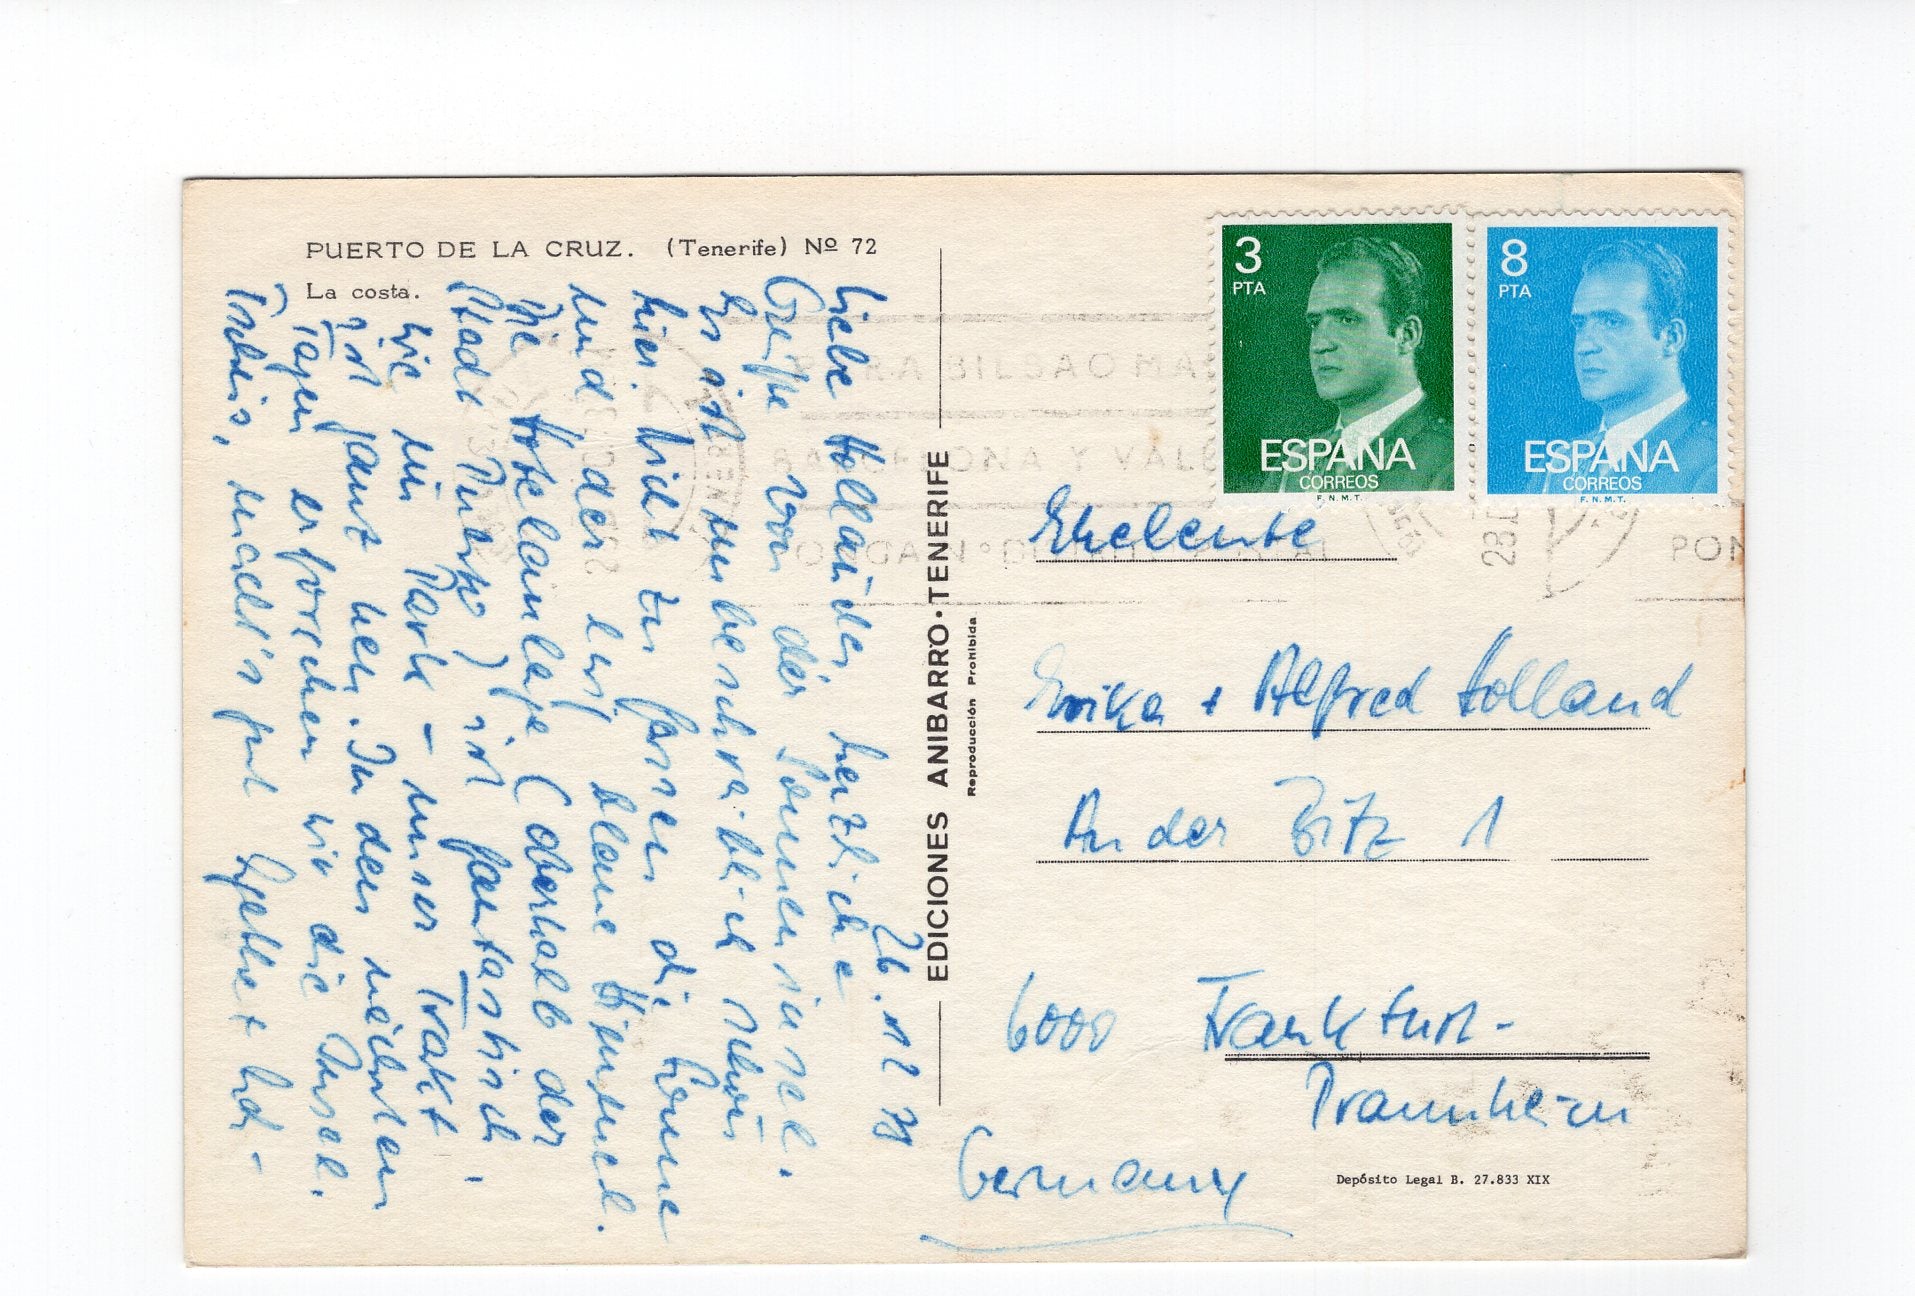 PUERTO DE LA CRUZ. (Tenerife) Nº 72
La costa.
26.12.78
Liebe Holländer, herzliche
Grüße von der Sonneninsel.
Es ist unbeschreiblich schön
hier. Nicht zu fassen die Sonne
und der
Die Hotelanlage (oberhalb der
Stadt Puerto) ist fantastisch.
Wie ein Park - unser Trakt
ist ganz neu. In den nächsten
Tagen erforschen wir die Insel.
Tschüs, macht's gut
EDICIONES ANIBARRO · TENERIFE
Reproducción Prohibida
3
PTA
ESPAÑA
CORREOS
F.N.M.T.
8
PTA
ESPAÑA
CORREOS
F.N.M.T.
BILBAO
Y
Eheleute
Erika + Alfred Holland
An der Bitz 1
6000 Frankfurt-
Praunheim
Germany
Depósito Legal B. 27.833 XIX